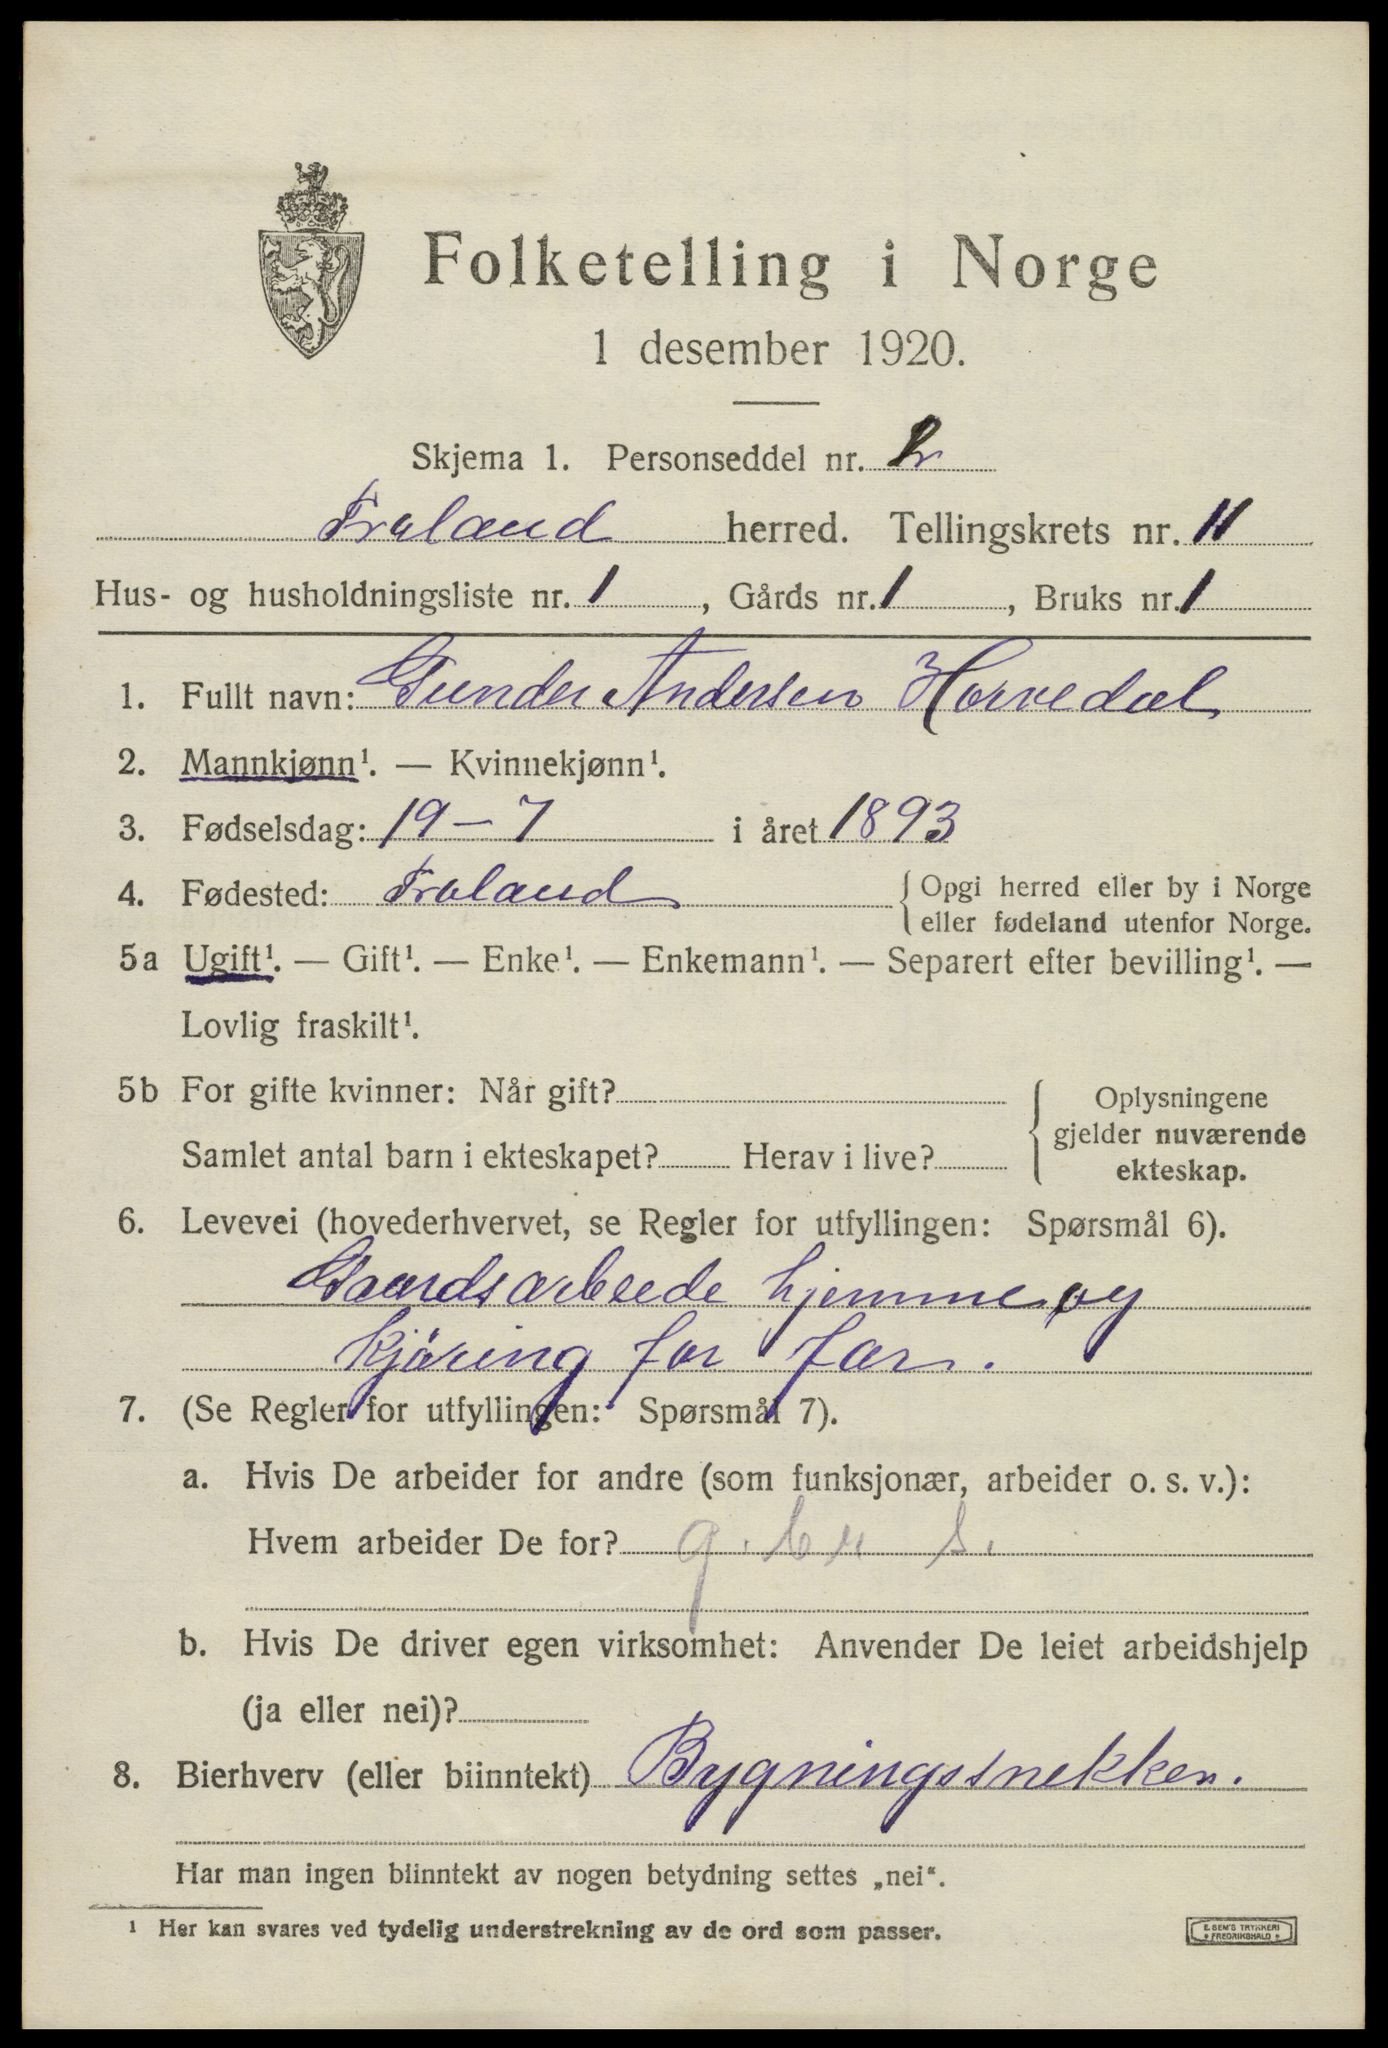 Folketelling i Norge
1 desember 1920.
Skjema 1. Personseddel nr. 2
Froland herred. Tellingskrets nr. 11
Hus- og husholdningsliste nr. 1, Gårds nr. 1, Bruks nr. 1
1. Fullt navn: Gunder Andersen Hovedal
2. Mannkjønn¹. — Kvinnekjønn¹.
3. Fødselsdag: 19 – 7 i året 1893
4. Fødested: Froland { Opgi herred eller by i Norge
eller fødeland utenfor Norge.
5a Ugift¹. — Gift¹. — Enke¹. — Enkemann¹. — Separert efter bevilling¹. —
Lovlig fraskilt¹.
5b For gifte kvinner: Når gift?
Samlet antal barn i ekteskapet? Herav i live?
{ Oplysningene
gjelder nuværende
ekteskap.
6. Levevei (hovederhvervet, se Regler for utfyllingen: Spørsmål 6).
Gaardsarbeide hjemme og
kjöring for far.
7. (Se Regler for utfyllingen: Spørsmål 7).
a. Hvis De arbeider for andre (som funksjonær, arbeider o. s. v.):
Hvem arbeider De for? g. br s.
b. Hvis De driver egen virksomhet: Anvender De leiet arbeidshjelp
(ja eller nei)?
8. Bierhverv (eller biinntekt) Bygningssnekker.
Har man ingen biinntekt av nogen betydning settes „nei“.
¹ Her kan svares ved tydelig understrekning av de ord som passer.
E. SEM'S TRYKKERI
FREDRIKSHALD